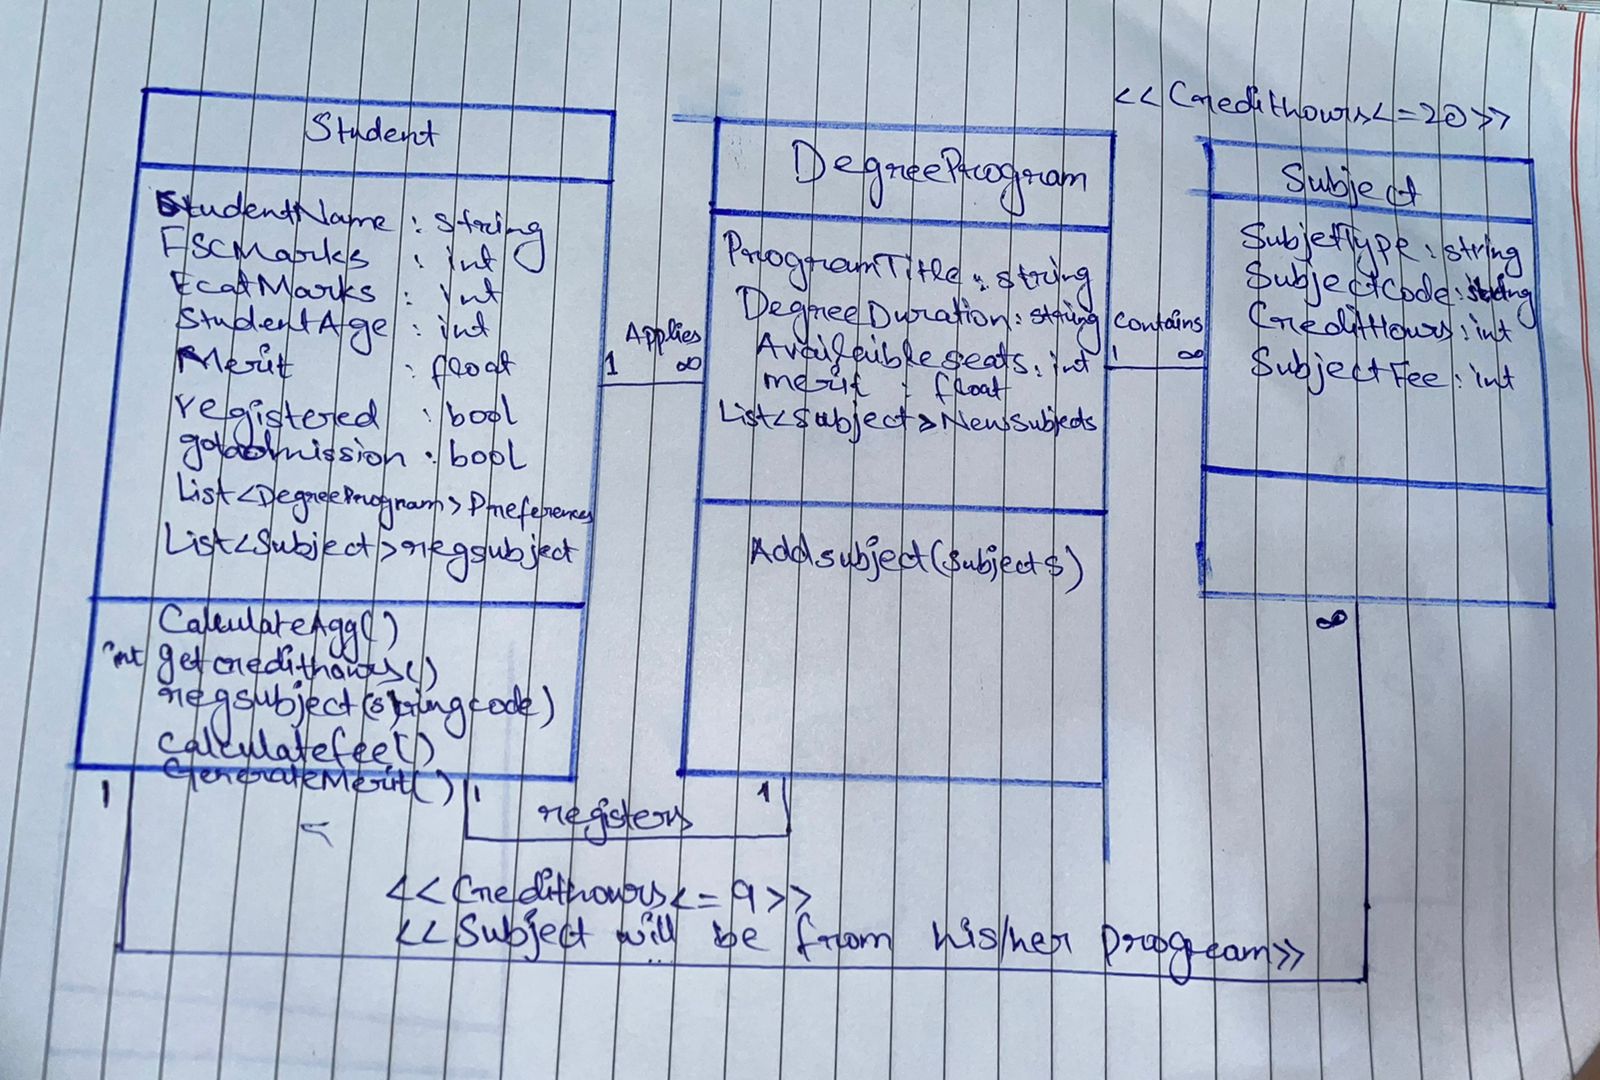 Student
StudentName : string
FSCMarks : int
EcatMarks : int
StudentAge : int
Merit : float
registered : bool
gotadmission : bool
List<DegreeProgram> Preferences
List<Subject> regsubject
CalculateAgg()
int getcredithours()
regsubject(stringcode)
calculatefee()
GenerateMerit()
Applies
1 ∞
DegreeProgram
ProgramTitle : string
DegreeDuration : string
Availaibleseats : int
merit : float
List<Subject> Newsubjects
Addsubject(subject s)
contains
1 ∞
<<Credithours<=20>>
Subject
SubjetType : string
Subjectcode : string
CreditHours : int
SubjectFee : int
∞
1
1 registers 1
<<Credithours<=9>>
<<Subject will be from his/her program>>